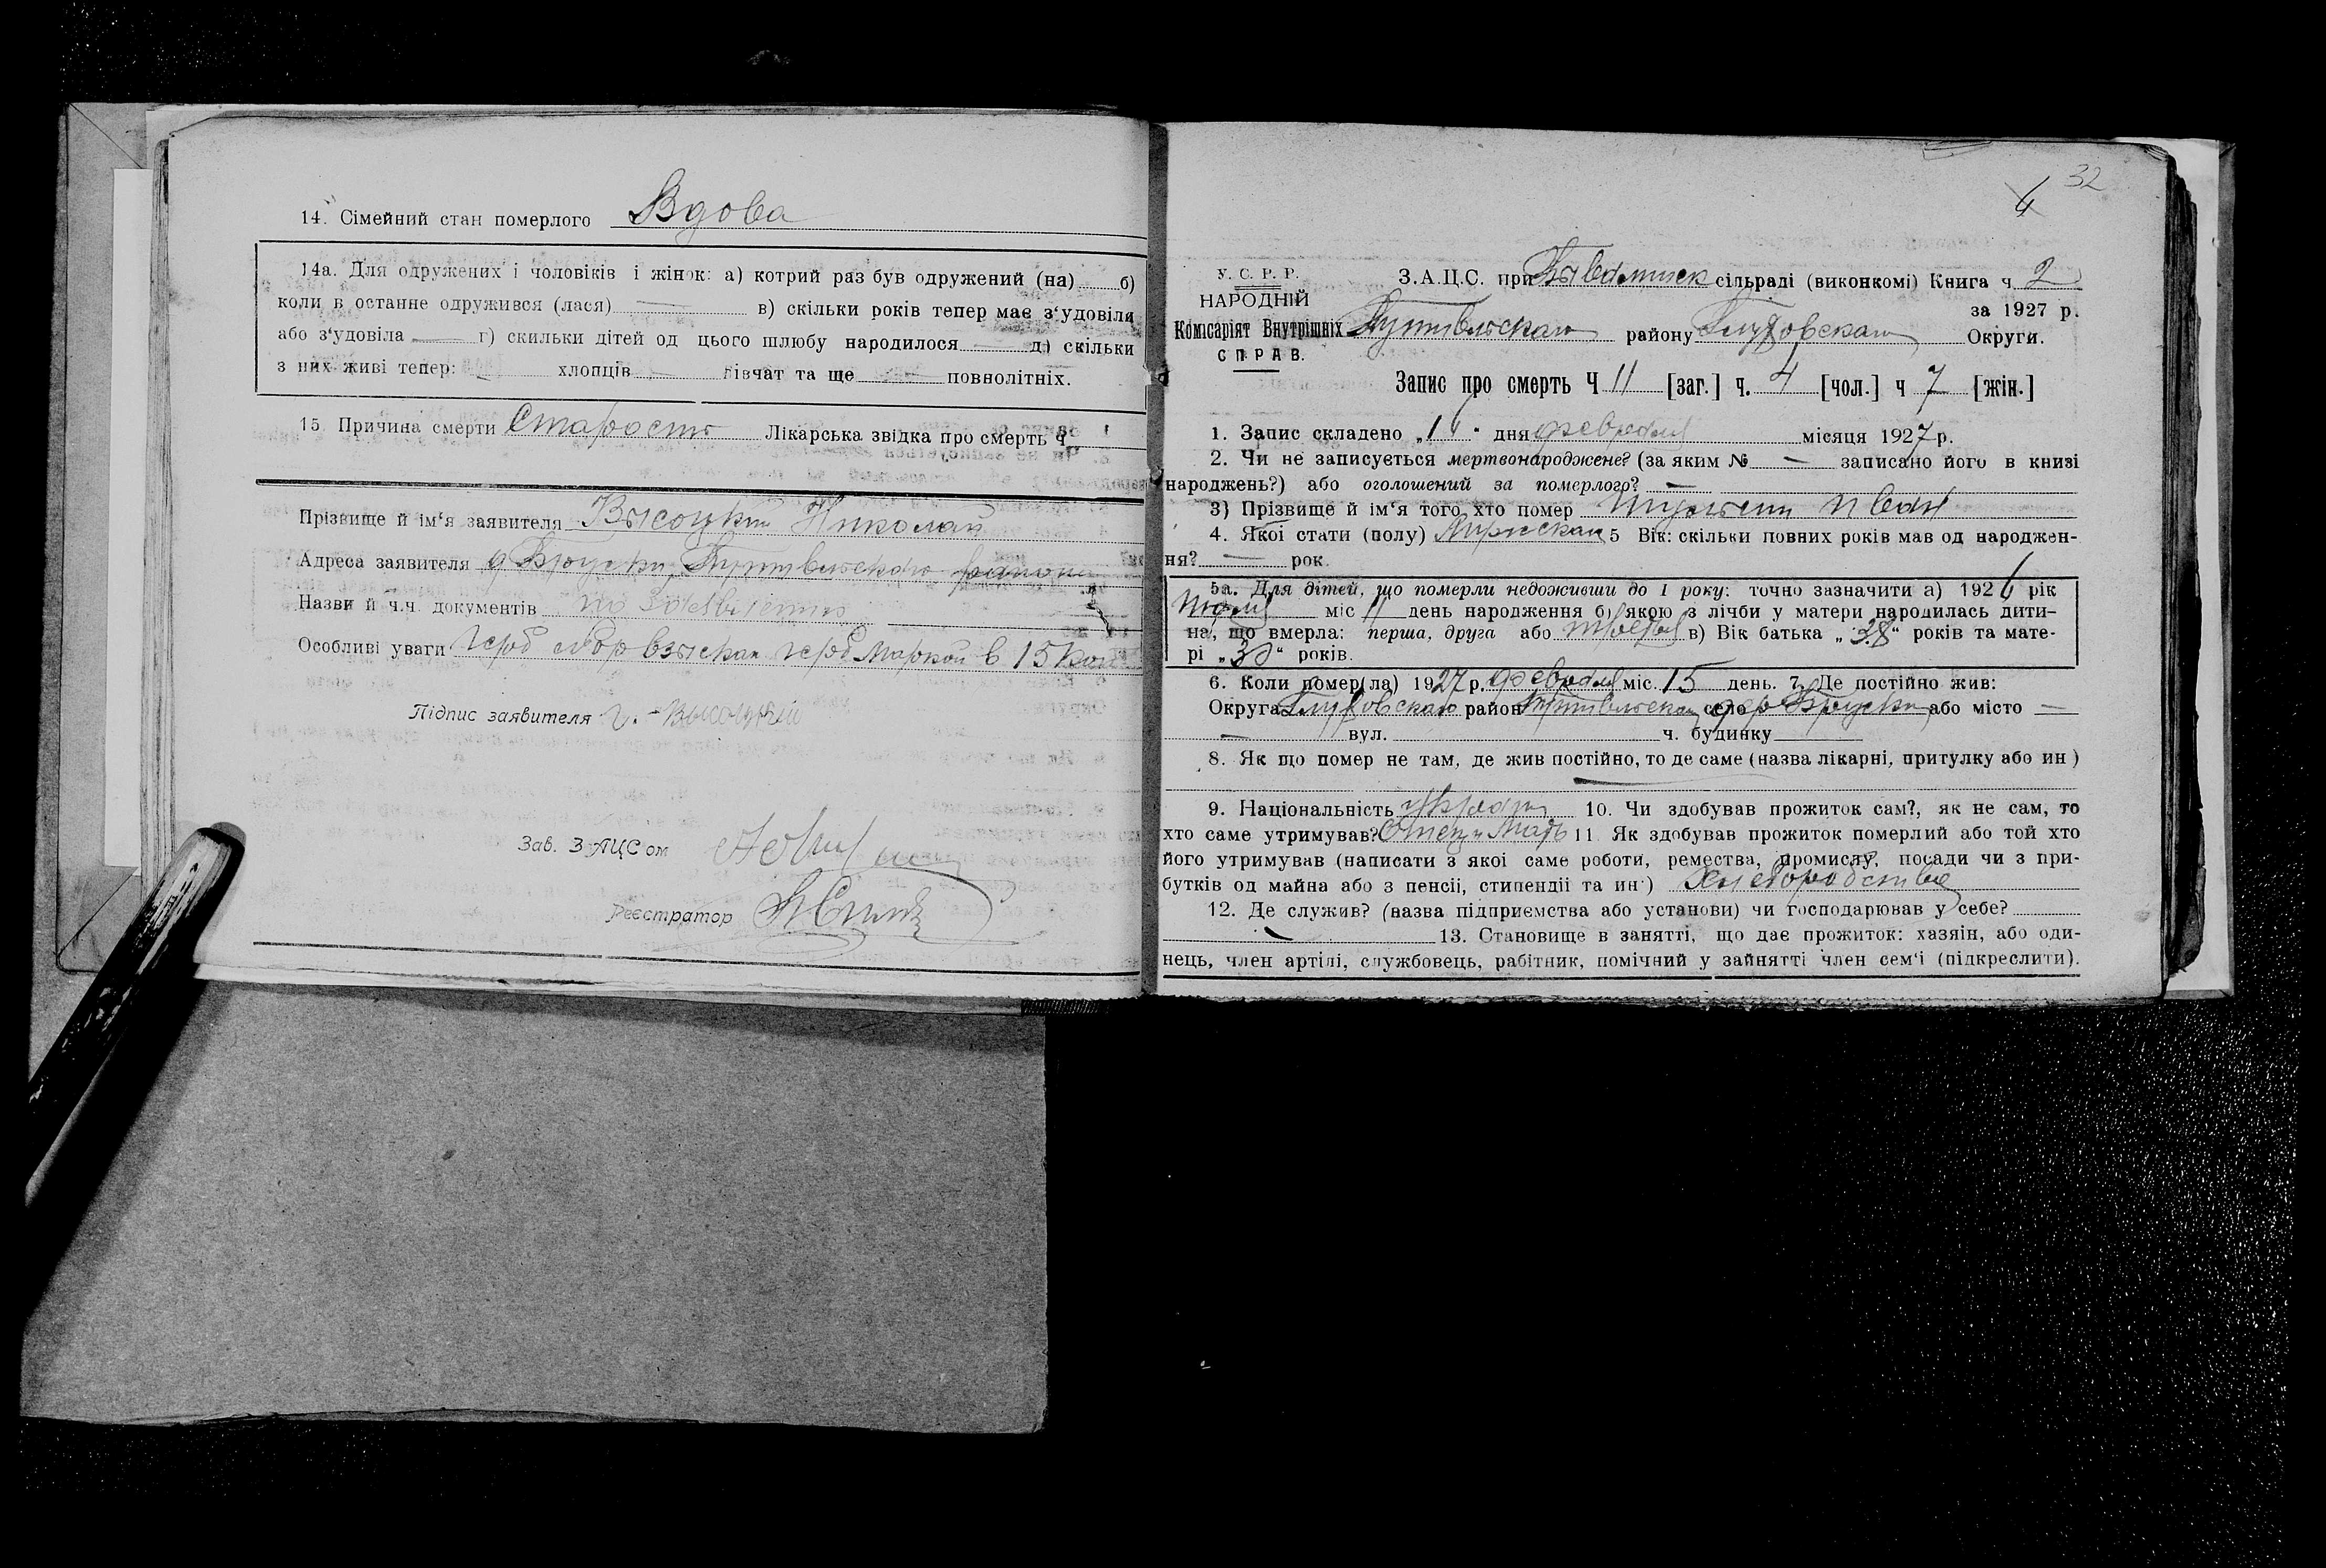 14. Сімейний стан померлого Вдова
14а. Для одружених і чоловіків і жінок: а) котрий раз був одружений (на) б)
коли в останне одружився (лася) — в) скільки років тепер має з‘удовіли
або з‘удовіла — г) скильки дітей од цього шлюбу народилося — д) скільки
з них живі тепер: — хлопців — дівчат та ще — повнолітніх.
15. Причина смерти Старость Лікарська звідка про смерть ч.
Прізвище й ім‘я заявителя Высоцкий Николай
Адреса заявителя д Бруски, Путивльского района
Назви й ч.ч. документів по
Особливі уваги герб сбор взыскан герб маркой в 15 коп
Підпис заявителя Высоцкий
Зав. ЗАЦСом
Реєстратор
32
У. С. Р. Р.
НАРОДНІЙ
Комісаріят Внутрішніх
СПРАВ.
З.А.Ц.С. при сільраді (виконкомі) Книга ч. 2
за 1927 р.
Путивльскаго району Глуховскаго Округи.
Запис про смерть Ч 11 [заг.] ч. 4 [чол.] ч 7 [жін.]
1. Запис складено „16“ дня февраля місяця 1927 р.
2. Чи не записується мертвонароджене? (за яким № — записано його в книзі
народжень?) або оголошений за померлого? —
3) Прізвище й ім‘я того хто помер Иван
4. Якої стати (полу) 5 Вік: скільки повних років мав од народжен-
ня? — рок.
5а. Для дітей, що померли недоживши до 1 року: точно зазначити а) 1926 рік
міс 11 день народження б) якою з лічби у матери народилась дити-
на, що вмерла: перша, друга або третья в) Вік батька „38“ років та мате-
рі „ “ років.
6. Коли помер(ла) 1927 р. февраля міс. 15 день. 7. Де постійно жив:
Округа Глуховскаго район Путивльскаго село дер Бруски або місто —
— вул. ч. будинку
8. Як що помер не там, де жив постійно, то де саме (назва лікарні, притулку або ин)
—
9. Національність 10. Чи здобував прожиток сам?, як не сам, то
хто саме утримував? Отец и Мать 11. Як здобував прожиток померлий або той хто
його утримував (написати з якої саме роботи, ремества, промислу, посади чи з при-
бутків од майна або з пенсії, стипендії та ин.)
12. Де служив? (назва підприємства або установи) чи господарював у себе?
— 13. Становище в занятті, що дає прожиток: хазяін, або оди-
нець, член артілі, службовець, рабітник, помічний у зайнятті член сем‘ї (підкреслити).